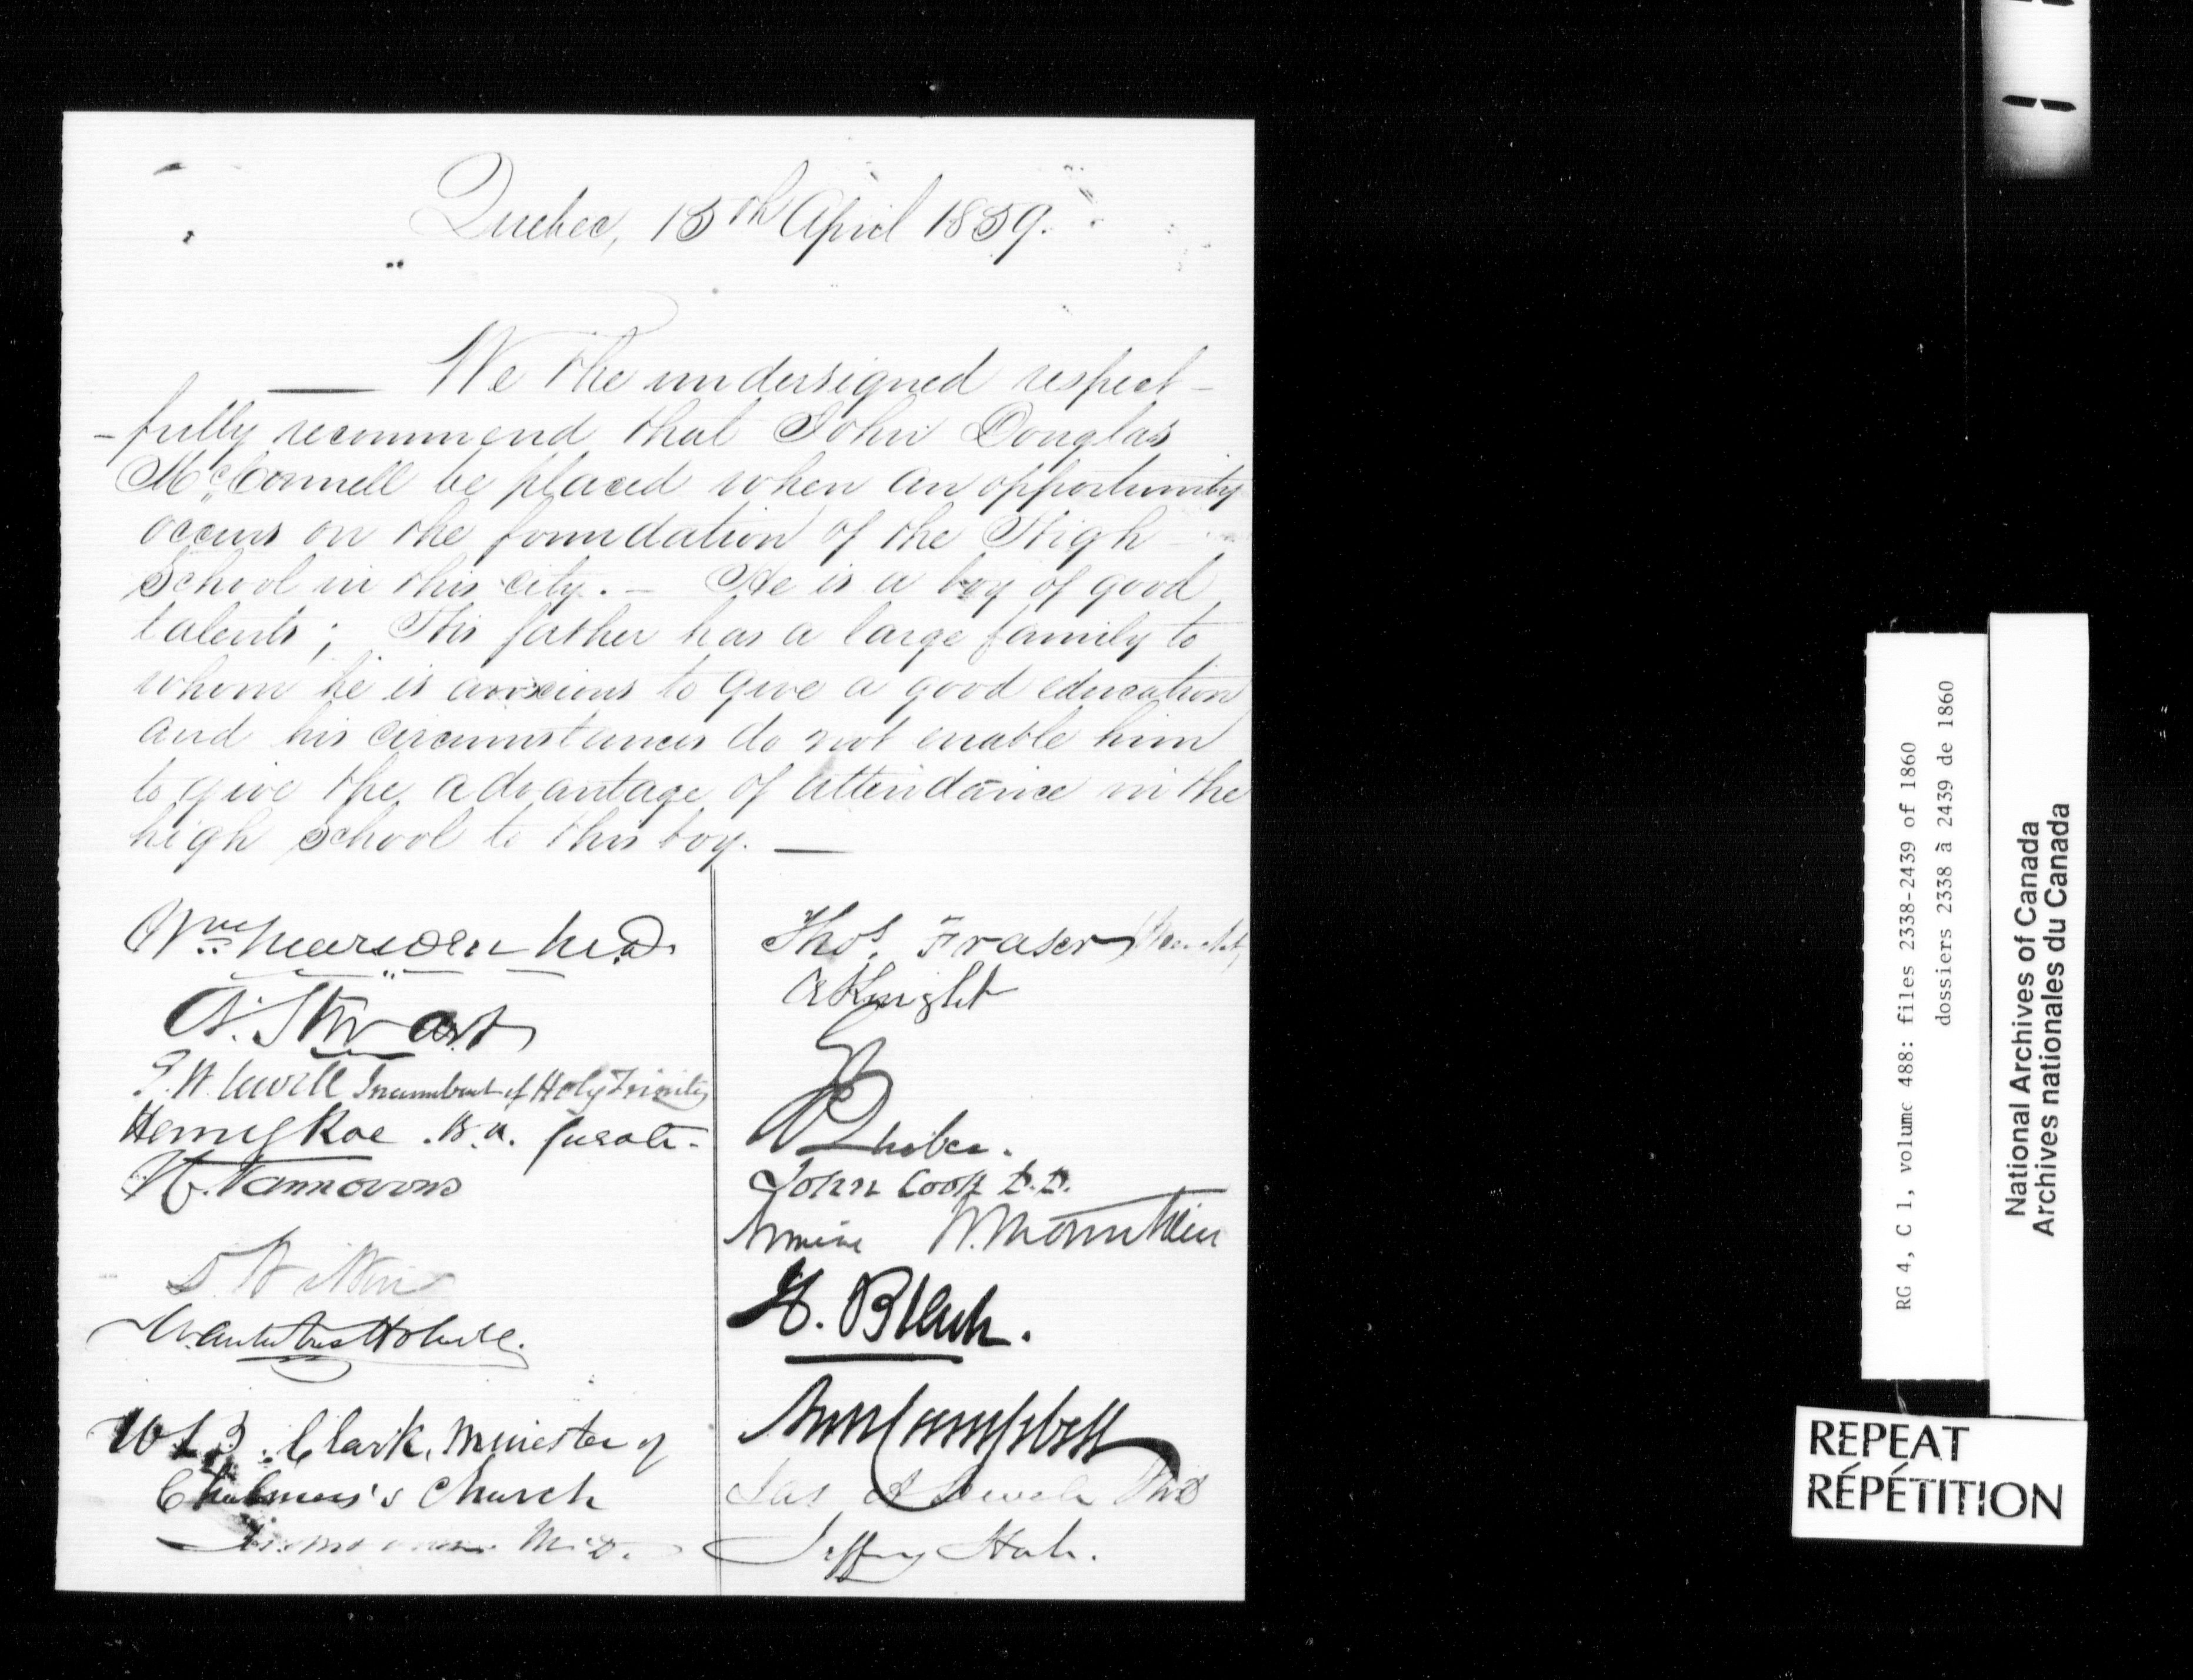 Quebec, 15th April 1859.
We the undersigned respect-
-fully recommend that John Douglas
McConnell be placed when an opportunity
occurs on the foundation of the High
School in this city. - He is a boy of good
talents; His father has a large family to
whom he is anxious to give a good education
and his circumstances do not enable him
to give the advantage of attendance in the
high School to this boy. —
Wm Marsden M.D.
A. Stuart
E. W. Sewell Incumbent of Holy Trinity
Henry Roe B.A. Curate.
D. Wilkie
W. B. Clark, Minister of
Chalmers's Church
M.D.
Thos. Fraser
A Knight
Quebec.
John Cook D.D.
Armine W. Mountain
H. Black.
Wm Campbell
Jas A Sewell MD
Jeffery Hale.
RG 4, C 1, volume 488: files 2338-2439 of 1860
dossiers 2338 à 2439 de 1860
National Archives of Canada
Archives nationales du Canada
REPEAT
RÉPÉTITION